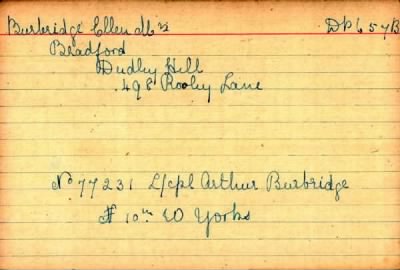 Burbridge Ellen Mrs DP 6 57B
Bradford
Dudley Hill
498 Rooley Lane
No 77231 L/cpl Arthur Burbridge
10th W Yorks